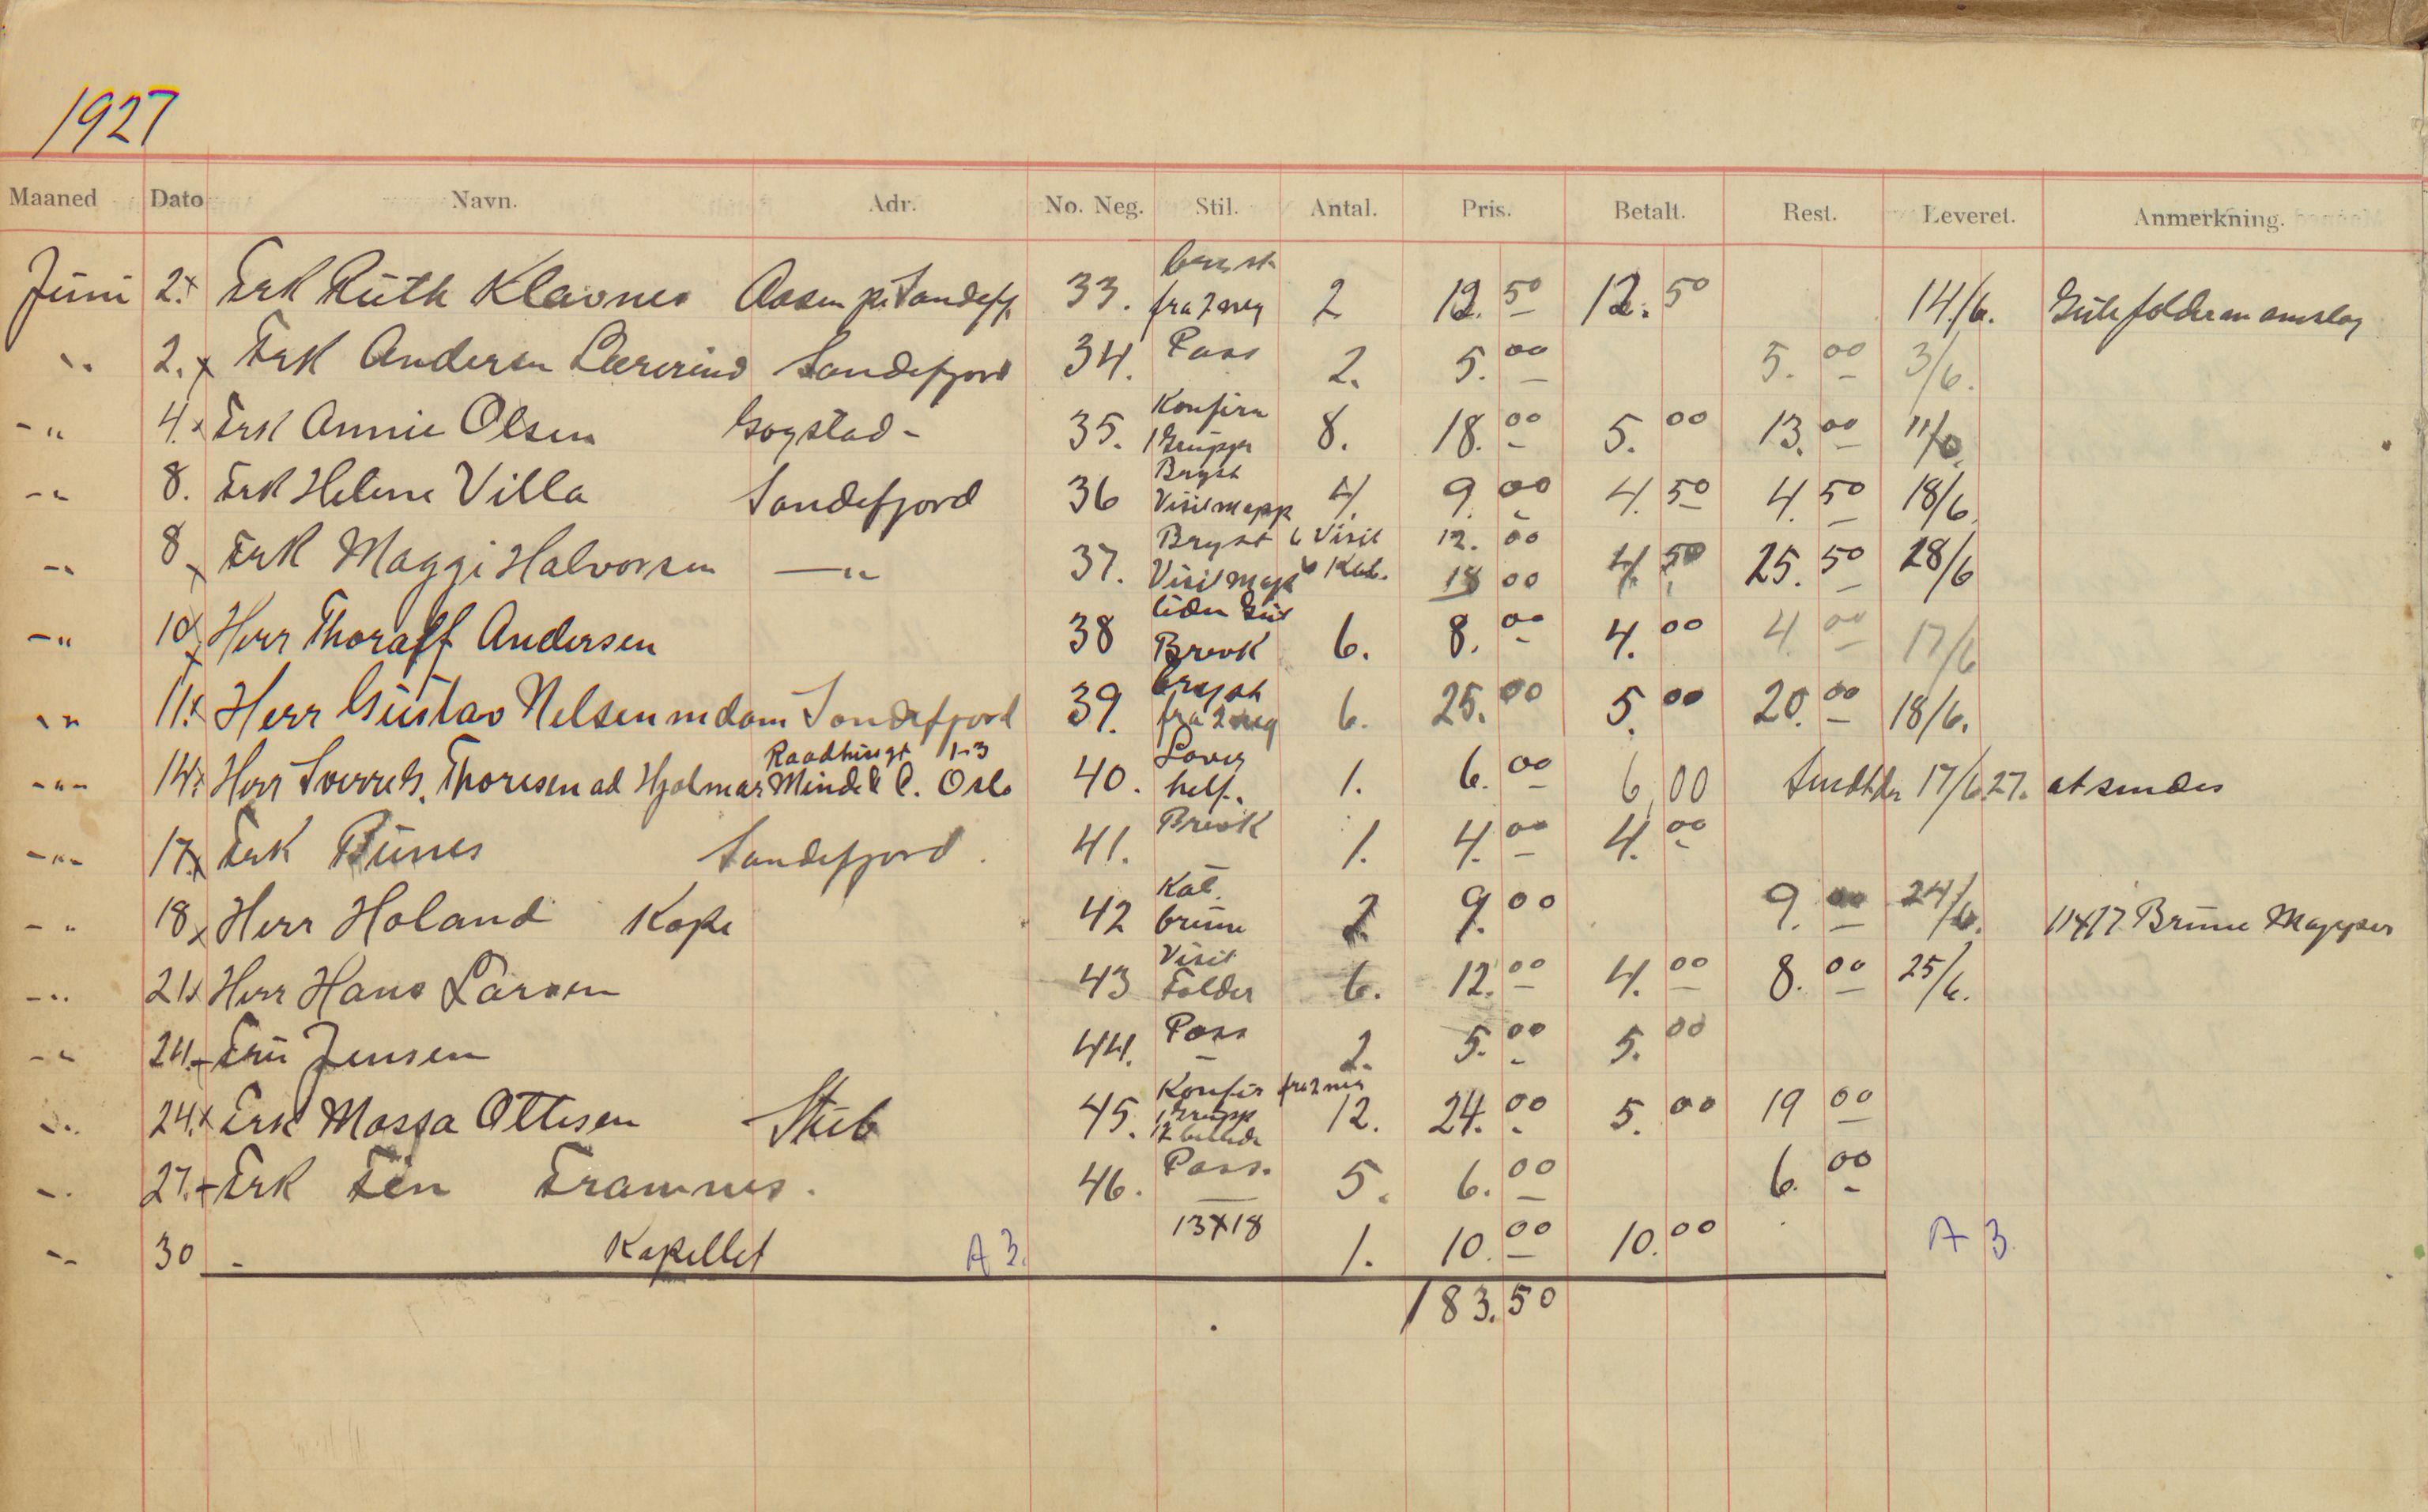 1927
Maaned Dato Navn. Adr. No. Neg. Stil. Antal. Pris. Betalt. Rest. Leveret. Anmerkning.
Juni 2. x Frk Ruth Klavnes Aasen pr. Sandefj. 33. bryst fra 2 neg 2 12.50 12.50 14/6.
" 2. x Frk Andersen Lærerind Sandefjord 34. Pass 2. 5.00 5.00 3/6.
-" 4. x Frk Annie Olsen Gogstad - 35. Konfirm 1 Gruppe 8. 18.00 5.00 13.00 11/6.
-" 8. Frk Helene Villa Sandefjord 36 Bryst Visitmapp 4. 9.00 4.50 4.50 18/6
-" 8 x Frk Maggi Halvorsen —" 37. Bryst 6 Visit 12.00
Visitmapp 6 Kab. 18 00 4.50 25.50 28/6
-" 10 x Herr Thoralf Andersen 38 Brevk 6. 8.00 4.00 4 00 17/6
-" 11. x Herr Gustav Nelsen m dam Sandefjord 39. bryst fra 2 neg 6. 25.00 5.00 20.00 18/6.
Raadhusgt 1-3
-"- 14. x Herr Sverre G. Thoresen ad Hjalmar Minde & C. Oslo 40. helf. 1. 6.00 6,00 Sendt den 17/6.27. at sendes
-"- 17. x Frk Bunes Sandefjord. 41. Brevk 1. 4.00 4.00
-" 18 x Herr Holand Kope 42 Kab. brune 2 9.00 9.00 24/6. 11x17 Brune Mapper
-" 21 x Herr Hans Larsen 43 Visit Folder 6. 12.00 4.00 8.00 25/6.
-" 24.- Fru Jensen 44. Pass - 2. 5.00 5.00
-" 24. x Frk Massa Ottesen Stub 45. Konfir fra 2 neg 1 Grupp 12 billede 12. 24.00 5.00 19 00
-" 27.- Frk Fén Framnes. 46. Pass. 5. 6.00 6.00
-" 30 - Kapellet A 3. 13x18 1. 10.00 10.00 A 3.
183.50